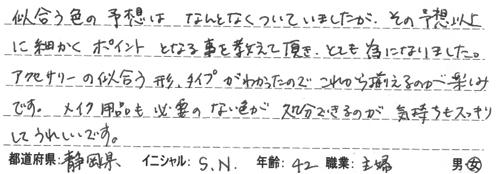 似合う色の予想は なんとなくついていましたが、その予想以上
に細かく ポイント となる事を教えて頂き、とても為になりました。
アクセサリーの似合う 形、タイプがわかったので これから揃えるのが楽しみ
です。 メイク用品も 必要のない色が 処分できるのが 気持ちもスッキリ
してうれしいです。
都道府県:静岡県 イニシャル: S.N. 年齢: 42 職業: 主婦 男・女